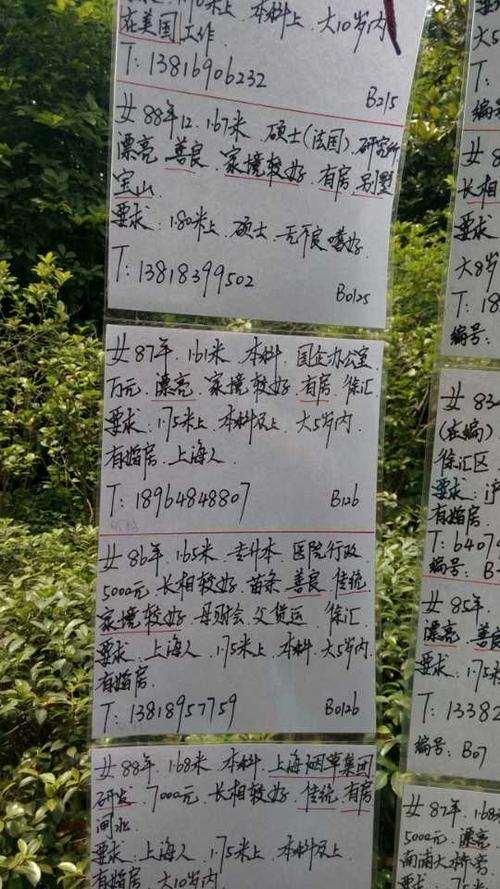 本科上 大10岁内
在美国工作
T: 13816906232
B215
女 88年12. 1.67米. 硕士(法国). 研究所
漂亮 善良. 家境较好. 有房 别墅
宝山
要求: 1.80米上. 硕士. 无不良嗜好.
T: 13818399502
B0125
女 87年. 1.61米. 本科. 国企办公室
万元. 漂亮. 家境较好. 有房. 徐汇
要求: 1.75米上. 本科及上. 大5岁内.
有婚房. 上海人.
T: 18964848807
B126
女 86年. 1.65米. 专升本. 医院行政
5000元. 长相较好. 苗条. 善良. 传统
家境较好. 母财会. 父货运. 徐汇
要求: 上海人. 1.75米上. 本科. 大5岁内
有婚房.
T: 13818957759
B0126
女 88年. 1.68米. 本科. 上海烟草集团
研发. 7000元. 长相较好. 传统. 有房
闸北
要求: 上海人. 1.75米上. 本科及上
有婚房. 大10岁内
大5
编号
女 8
长相
要求
大8岁
T: 18
编号:
女 834
(在编)
徐汇区
要求: 沪
有婚房
T: 6407
编号: B
女 85年.
漂亮 善良
要求: 1.75米
T: 13382
编号: B07
女 87年. 1.68
5000元. 漂亮
南浦大桥旁